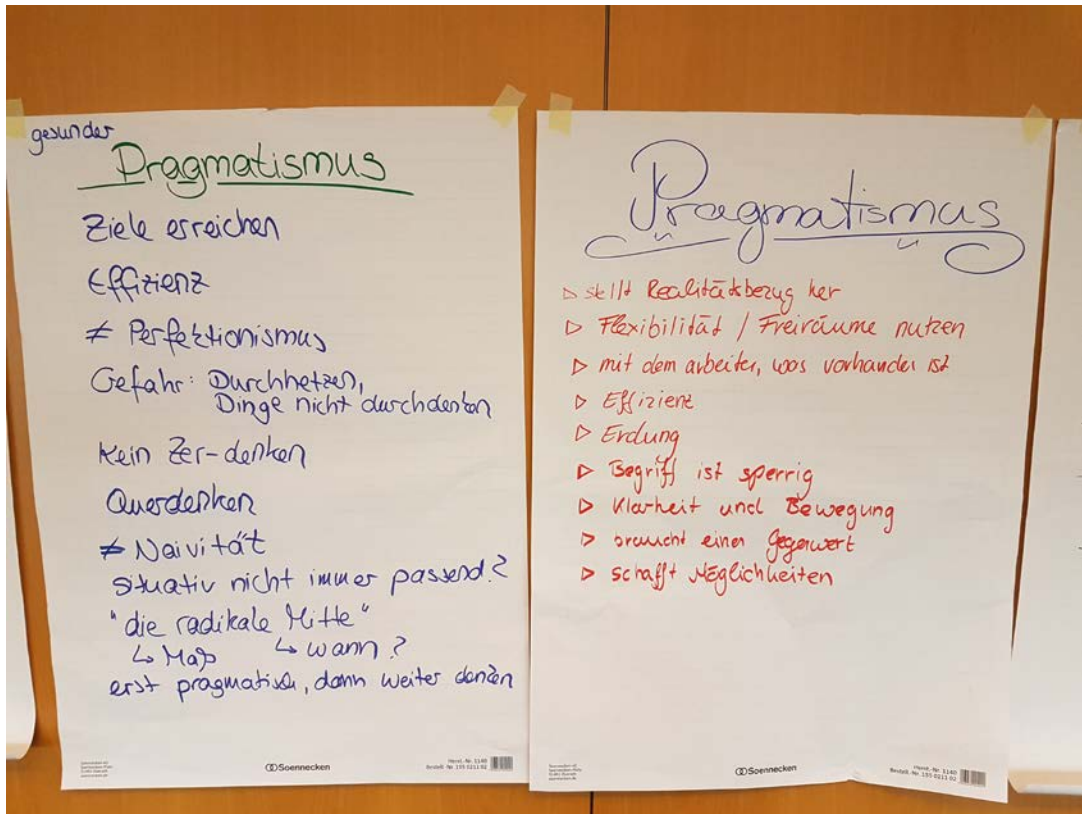 gesunder
Pragmatismus
Ziele erreichen
Effizienz
≠ Perfektionismus
Gefahr: Durchhetzen,
Dinge nicht durchdenken
Kein Zer-denken
Querdenken
≠ Naivität
situativ nicht immer passend?
"die radikale Mitte"
↳ Maß ↳ wann?
erst pragmatisch, dann weiter denken
Soennecken
Pragmatismus
▷ stellt Realitätsbezug her
▷ Flexibilität / Freiräume nutzen
▷ mit dem arbeiten, was vorhanden ist
▷ Effizienz
▷ Erdung
▷ Begriff ist sperrig
▷ Klarheit und Bewegung
▷ braucht einen Gegenwert
▷ schafft Möglichkeiten
Soennecken